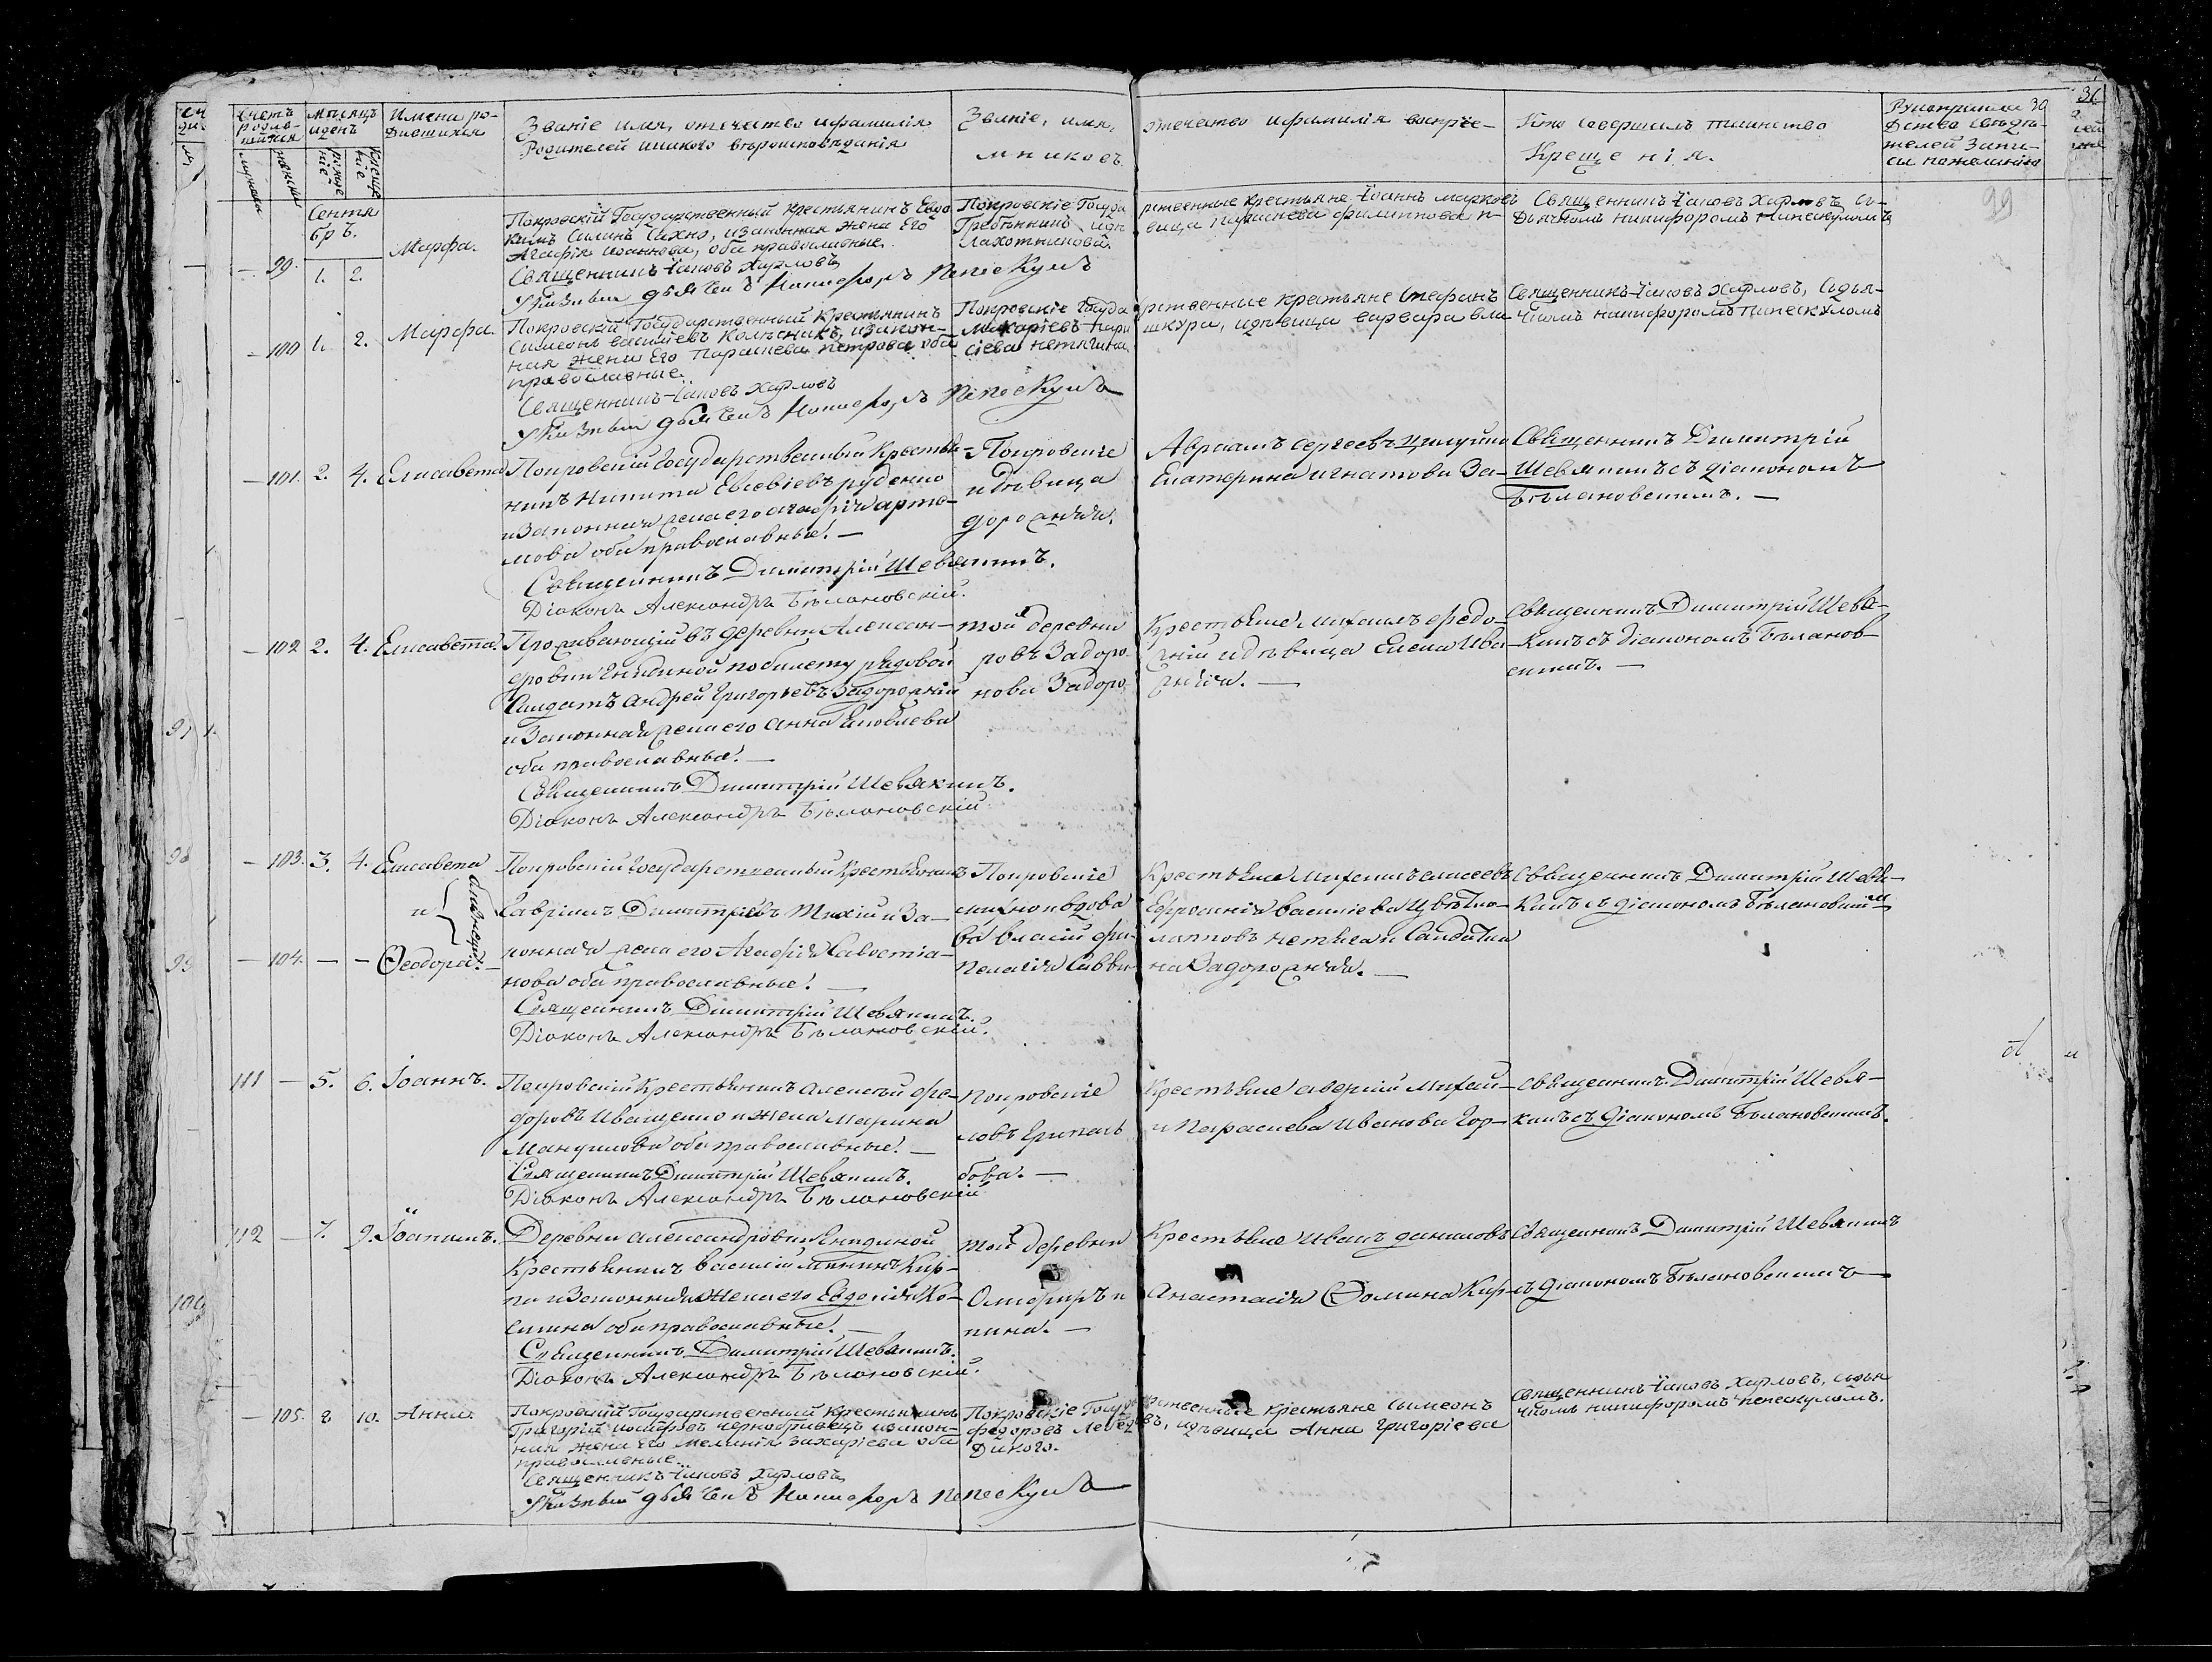 Счетъ родив-шихся
Мѣсяцъ и день
Имена ро-
дившихся
Званіе имя, отечество и фамилія
Родителей и какого вѣроисповѣданія
Званіе, имя,
отечество и фамилія воспріе-
мниковъ
Кто совершилъ таинство
Крещенія.
Рукоприкла
дство свидѣ-
телей запи-
си по желанію
39
36
99
Сентя
брь.
— 99. 1. 2. Марфа.
Покровскій Государственный крестьянинъ Евдо
кимъ Силинъ Сахно, изаконная жена Его
Агафія Иоаннова, оба православные.
Священникъ Іаковъ Харловъ
Указный дьячекъ Никифоръ Пепескулъ
Покровскіе Госуда
рственные крестьяне Іоаннъ марковъ
Гребѣнникъ, идѣ
вица Параскева филиппова п-
лахотникова.
Священникъ Іаковъ Харловъ съ-
дьячкомъ никифоромъ Пепескуломъ
— 100 1. 2. Марфа.
Покровскій Государственный Крестьянинъ
Симеонъ василіевъ Колѣсникъ, изакон-
ная жена Его Параскева Петрова оба
православные.
Священникъ Іаковъ Харловъ
Указный дьячекъ Никифоръ Пепескулъ
Покровскіе Госуда
рственные крестьяне Стефанъ
Макаріевъ
шкура, идѣвица варвара вла
сіева нетягина.
Священникъ Іаковъ Харловъ, Съдья-
чкомъ никифоромъ Пепескуломъ
— 101. 2. 4. Елисавета
Покровскій Государственный Крестья-
нинъ Никита Евсевіевъ руденко
изаконная жена его агафія арте-
мова оба православные. —
Священникъ Димитрій Шевякинъ.
Діаконъ Александръ Бѣлановскій.
Покровскіе
Авраамъ Сергеевъ
идѣвица
Екатерина игнатова За-
дорожняя.
Священникъ Димитрій
Шевякинъ съ діакономъ
Бѣлановскимъ. —
— 102 2. 4. Елисавета.
Проживающій въ деревни Алексан-
дровки по билету рядовой
Солдатъ Андрей Григорьевъ Задорожній
изаконная жена его Анна Яковлева
оба православны. —
Священникъ Димитрій Шевякинъ.
Діаконъ Александръ Бѣлановскій
той деревни
Крестьяне Михаилъ федо-
ровъ Задоро
жній идѣвица Елена Ива-
нова Задоро
жняя. —
Священникъ Димитрій Шевя-
кинъ съ діакономъ Бѣланов-
скимъ. —
97
98
— 103. 3. 4. Елисавета
и близнецы
99
— 104. — — Ѳеодора. —
Покровскій государственный Крестьянинъ
Гавріилъ Димитріевъ Тихій иза-
конная жена его Агафія
нова оба православные. —
Священникъ Димитрій Шевякинъ.
Діаконъ Александръ Бѣлановскій.
Покровскіе
Крестьяне Михаилъ елисеевъ
михно ивдова
Евфросинія василіева
ва власій фи-
липповъ нетяга и Солдатка
Пелагія Савви-
на Задорожняя. —
Священникъ Димитрій Шевя-
кинъ съ діакономъ Бѣлановским
111 — 5. 6. Іоаннъ.
Покровскій Крестьянинъ алексѣй фе-
доровъ Иващенко и жена Марина
Мануилова оба православные. —
Священникъ Димитрій Шевякинъ.
Діаконъ Александръ Бѣлановскій
Покровскіе
Крестьяне аверкій Михай-
ловъ
и Параскева Иванова Гор-
бова. —
Священникъ Димитрій Шевя-
кинъ съ діакономъ Бѣлановскимъ.
112 — 7. 9. Іоакимъ.
Деревни александровки
Крестьянинъ василій Кир-
па изаконная жена его Евдокія Ко-
смина оба православные. —
Священникъ Димитрій Шевякинъ.
Діаконъ Александръ Бѣлановскій.
той деревни
Крестьяне Иванъ даниловъ
Анастасія Ѳомина Кир-
пина. —
Священникъ Димитрій Шевякинъ
съ діакономъ Бѣлановскимъ
100
— 105. 8 10. Анна.
Покровскій Государственный Крестьянинъ
Григорій чернобривецъ изакон-
ная жена Его Меланія Захаріева оба
православные.
Священникъ Іаковъ Харловъ
Указный дьячекъ Никифоръ Пепескулъ
Покровскіе Госуда
рственные крестьяне Симеонъ
федоровъ
идѣвица Анна григоріева
Дикого.
Священникъ Іаковъ Харловъ, съдья
чкомъ никифоромъ пепескуломъ.